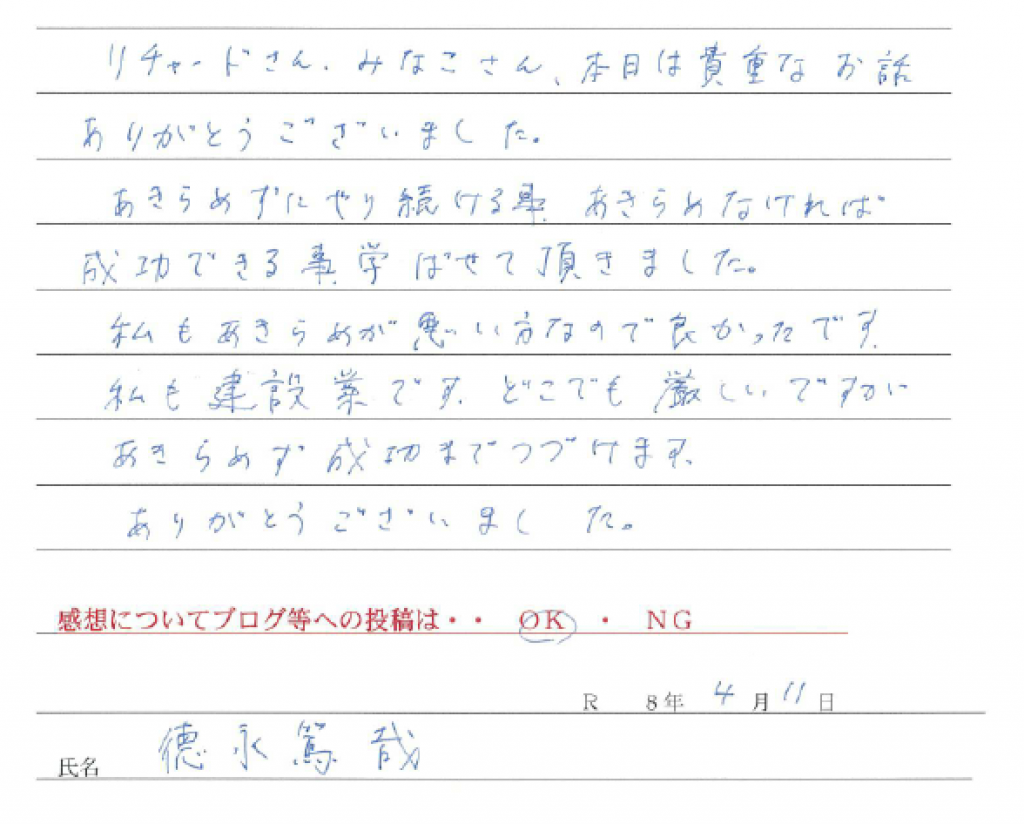 リチャードさん、みなこさん、本日は貴重なお話
ありがとうございました。
あきらめずにやり続ける事 あきらめなければ
成功できる事学ばせて頂きました。
私もあきらめが悪い方なので良かったです。
私も建設業です。どこでも厳しいですが
あきらめず成功までつづけます。
ありがとうございました。
感想についてブログ等への投稿は・・ OK ・ NG
R 8年 4月 11日
氏名 德永篤哉